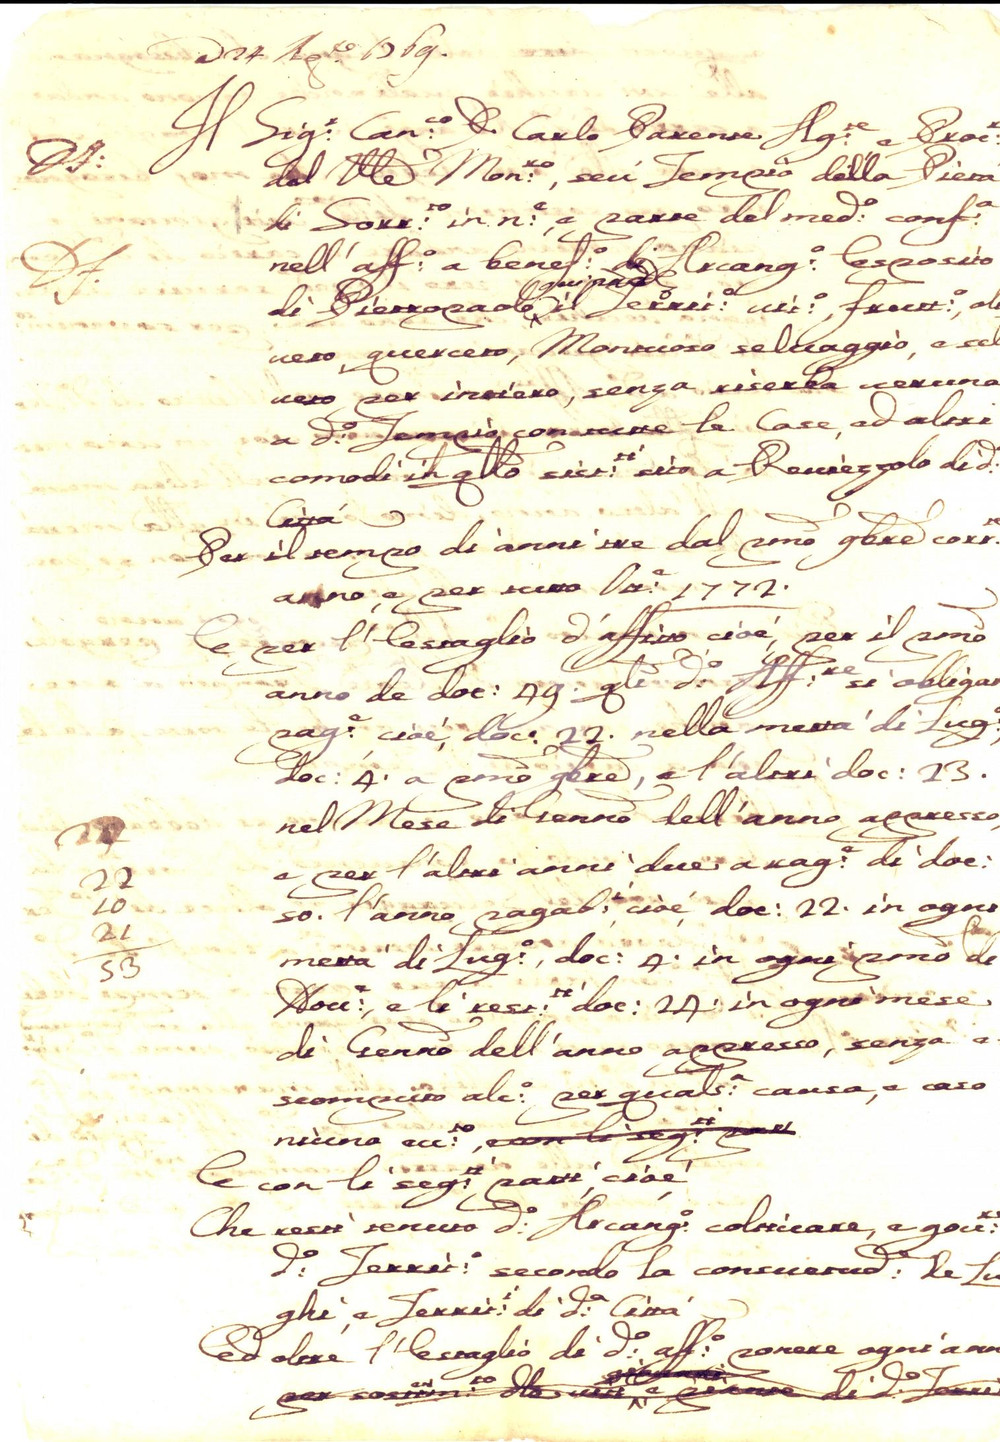 A 24 Ag.to 1769.
Il Sig.r Can.co D. Carlo Parense Ag.te e Proc.r
del Mon.ro, seu Tempio della Pietà
di Sorr.to in n.e, e parte del med.o conf.a
nell' aff.o a benef.o di Arcang.o Esposito
di Pietropaolo il Territ.o vit.o, frutt.o, oli
veto, querceto, Montuoso selvaggio, e sel
veto per intiero, senza riserba veruna
a d.o Tempio con tutte le Case, ed altri
comodi in qllo sist.ti sito a Revezzolo di d.
Città
Per il tempo di anni tre dal pmo 9bre corr.te
anno, e per tutto 8tt.e 1772.
E per l'Estaglio d'affitto cioè, per il pmo
anno de doc: 49. qli d.o Aff.re si obligar
pag.e cioè, doc: 22. nella metà di Lug.o,
doc: 4. a pmo 9bre, e l'altri doc: 23.
nel Mese di Genno dell'anno appresso,
e per l'altri anni due a rag.e di doc:
50. l'anno pagab.i cioè, doc: 22. in ogni
22
10
21
53
metà di Lug.o, doc: 4. in ogni pmo di
Nov.e, e li rest.ti doc: 24. in ogni mese
di Genno dell'anno appresso, senza e
scomputo alc.o per quals.a causa, e caso
niuno ecc.to, e con li seg.ti patti
E con li seg.ti patti, cioè
Che resti tenuto d.o Arcang.o coltivare, e gov.re
d.o Territ.o secondo la consuetud.e de Lu
ghi, e Territ.i di d.a Città
Ed oltre l'Estaglio di d.o aff.o ponere ogni ann
per di d.o Territ